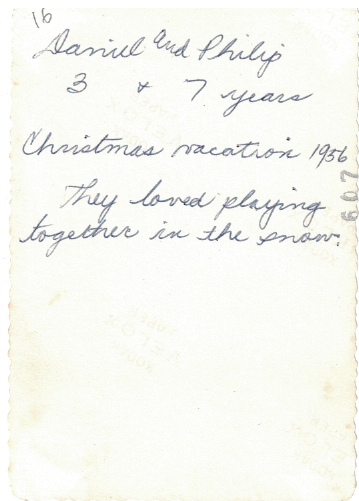 16
Daniel and Philip
3 & 7 years
Christmas vacation 1956
They loved playing
together in the snow.
607
VELOX